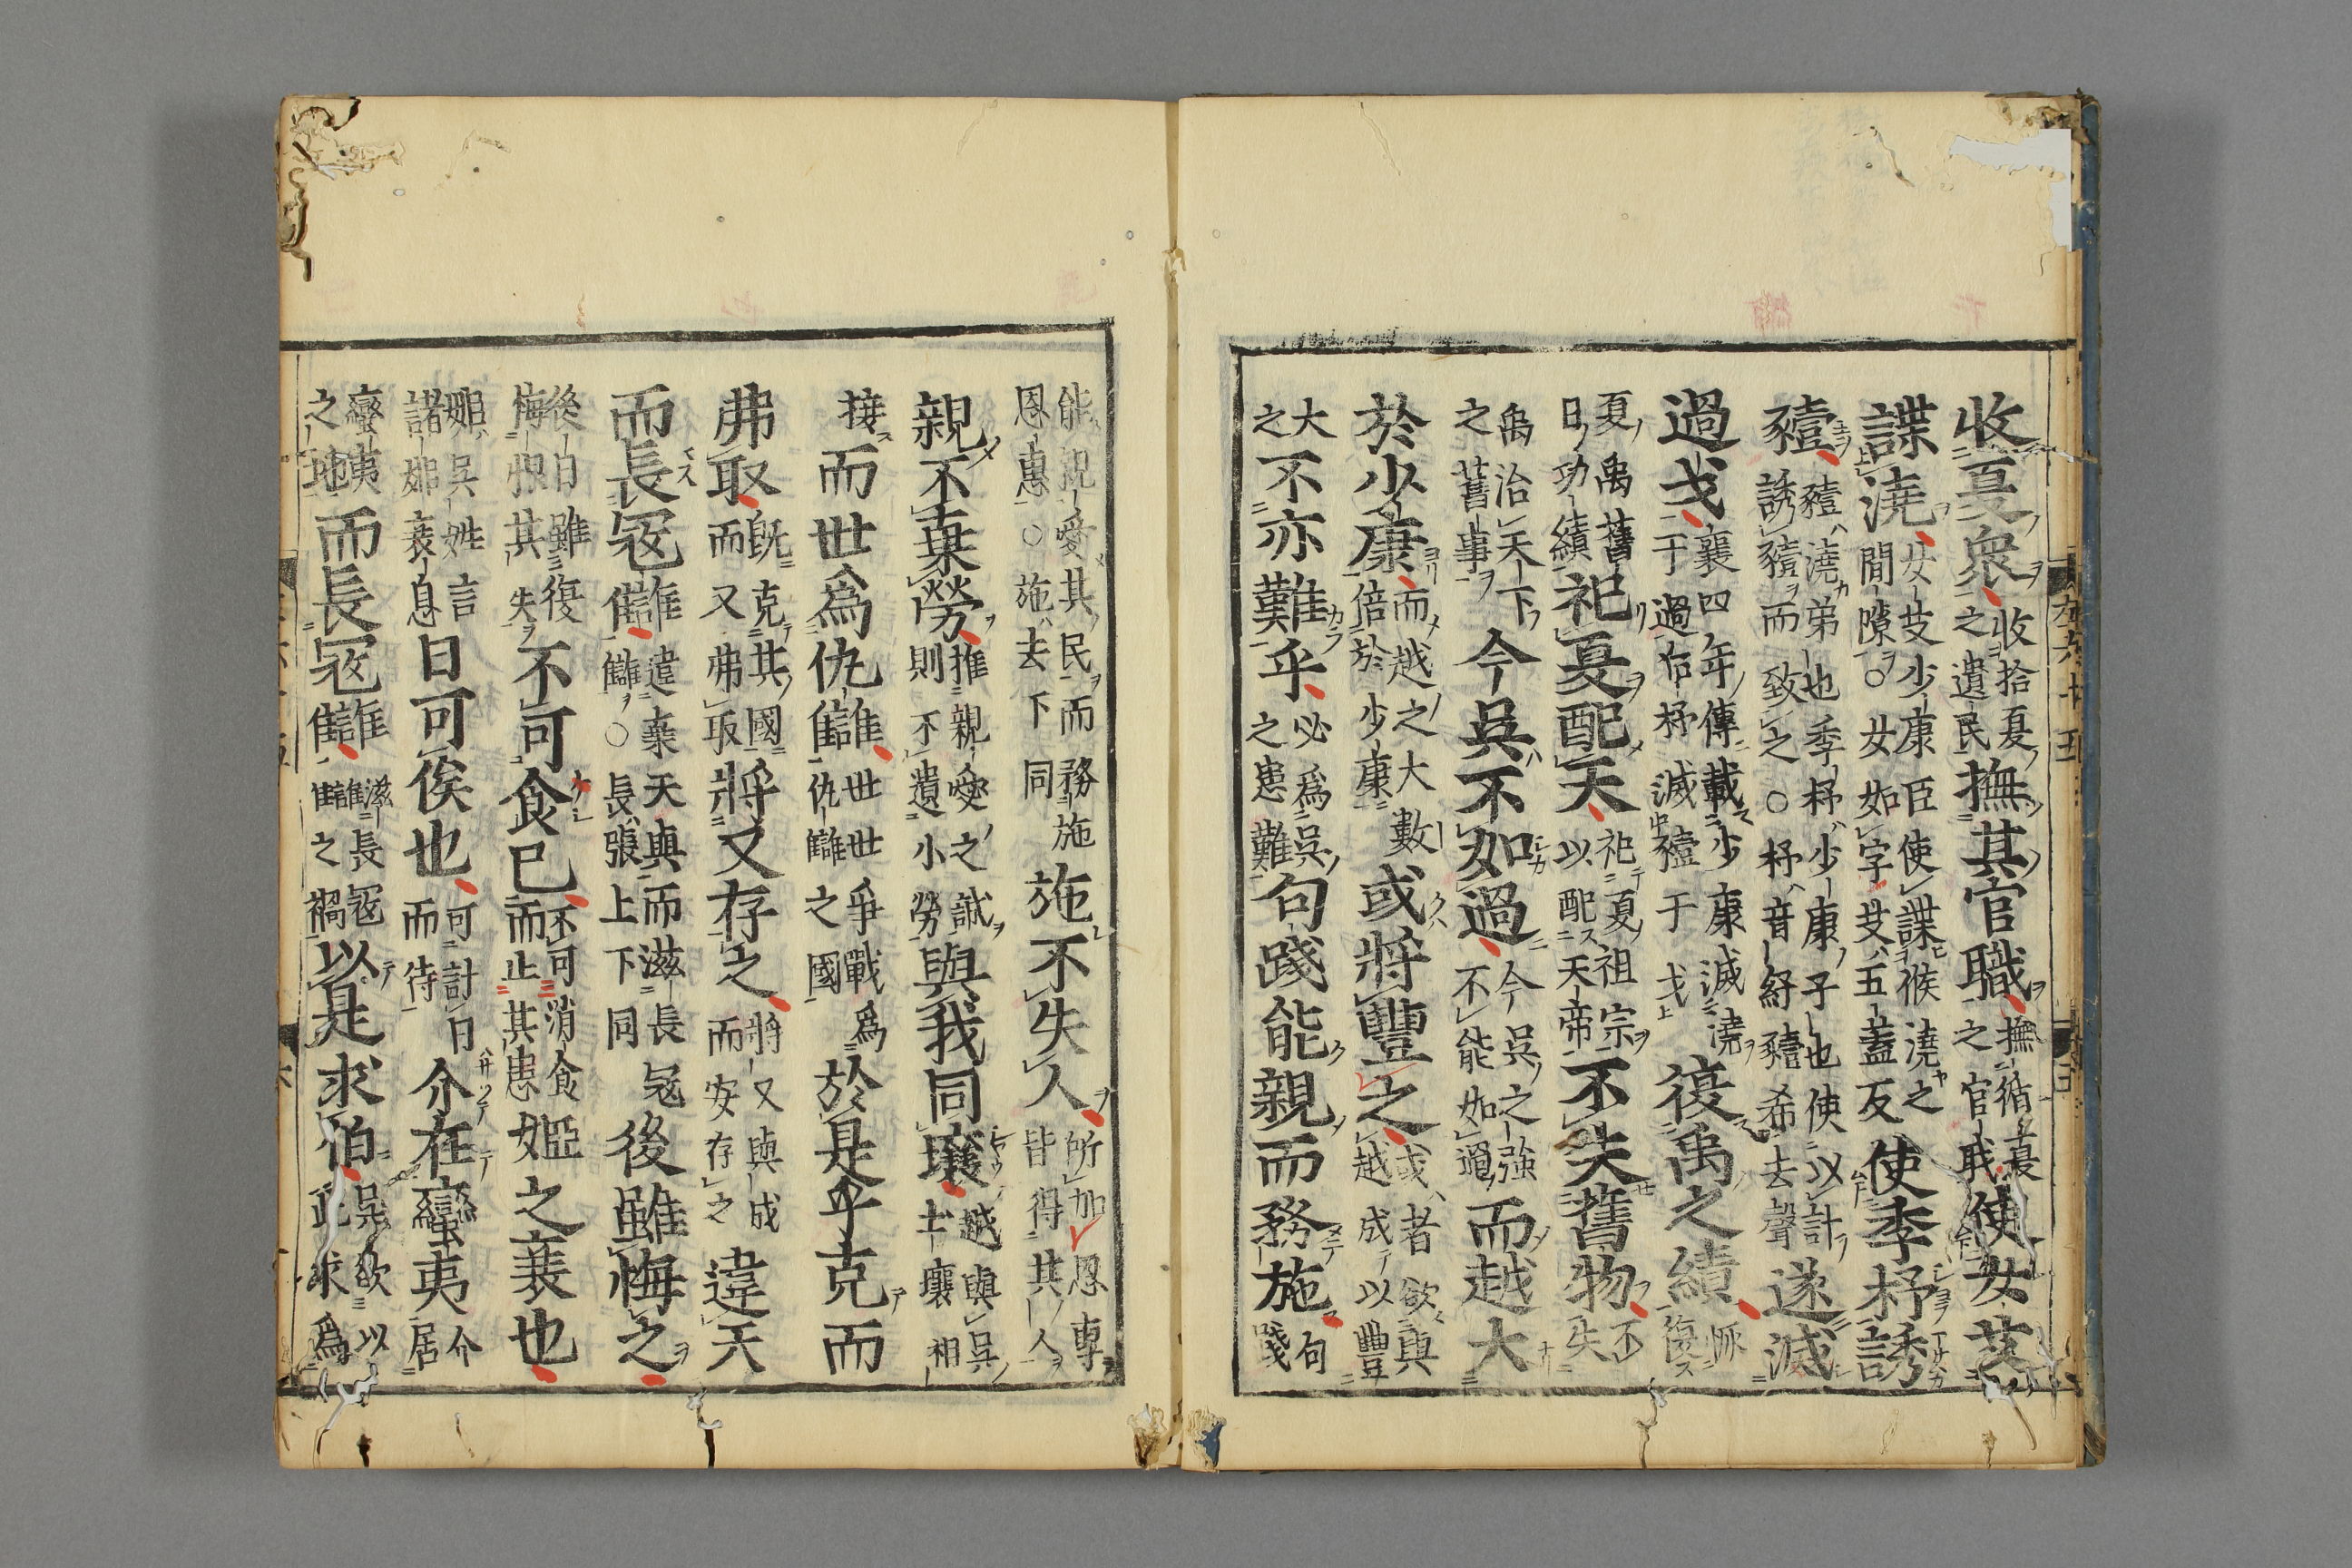 收夏衆收拾夏之遺民撫其官職撫循夏之官職使女艾
諜澆女艾少康臣使諜候澆之間隙○女如字艾五蓋反使季杼誘
豷豷澆弟也季杼少康子也使以計誘豷而致之○杼音紓豷希去聲遂滅
過戈襄四年傳載少康滅澆于過后杼滅豷于戈復禹之績恢復
夏禹舊日功績祀夏配天祀夏祖宗以配天帝不失舊物不失
禹治天下之舊事今吳不如過今吳之強不能如過而越大
於少康而越之大數倍於少康或將豐之或者欲與越成以豐
大之不亦難乎必爲吳之患難句踐能親而務施句踐
能親愛其民而務施恩惠○施去下同施不失人所加恩專皆得其人
親不棄勞推親愛之誠則不遺小勞與我同壤越與吳土壤相
接而世爲仇讎世世爭戰爲仇讎之國於是乎克而
弗取既克其國而又弗取將又存之將又與成而安存之違天
而長寇讎違棄天與而滋長寇讎○長張上下同後雖悔之
後日雖復悔恨其失不可食已不可消食而止其患姬之衰也
姬吳姓言諸姬衰息日可俟也可計日而待介在蠻夷介居
蠻夷之地而長寇讎滋長寇讎之禍以是求伯吳欲以此求爲